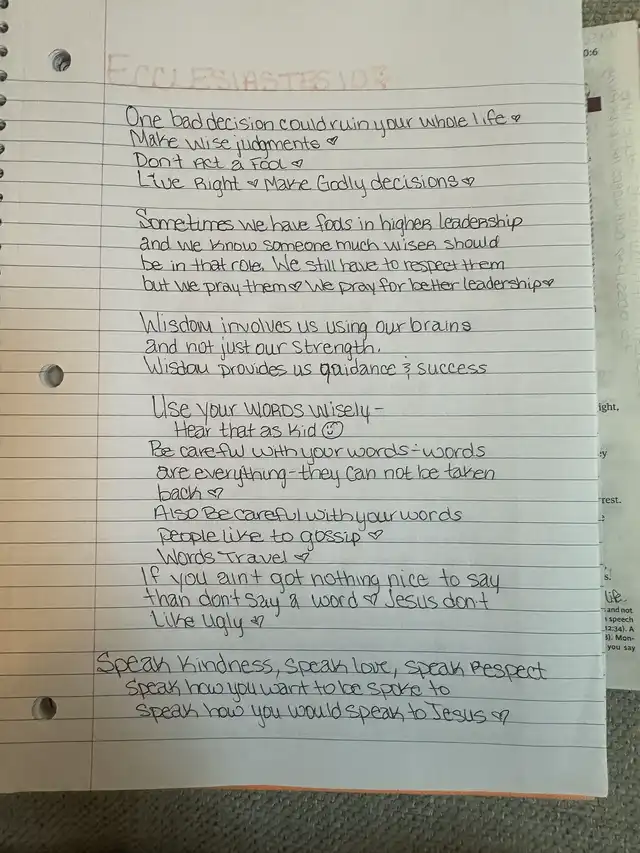 ECCLESIASTES 10
One bad decision could ruin your whole life ♡
Make wise judgments ♡
Don't Act a Fool ♡
Live Right ♡ Make Godly decisions ♡
Sometimes we have fools in higher leadership
and we know someone much wiser should
be in that role. We still have to respect them
but we pray them ♡ We pray for better leadership ♡
Wisdom involves us using our brains
and not just our strength.
Wisdom provides us guidance & success
Use your words wisely -
Hear that as kid ☺
Be careful with your words - words
are everything - they can not be taken
back ♡
Also Be careful with your words
people like to gossip ♡
Words Travel ♡
If you ain't got nothing nice to say
than don't say a word ♡ Jesus don't
Like ugly ♡
Speak Kindness, Speak love, Speak Respect
Speak how you want to be spoke to
Speak how you would speak to Jesus ♡
0:6
ight,
y
rest.
s.
life
and not
speech
12:34). A
3). Mon-
you say